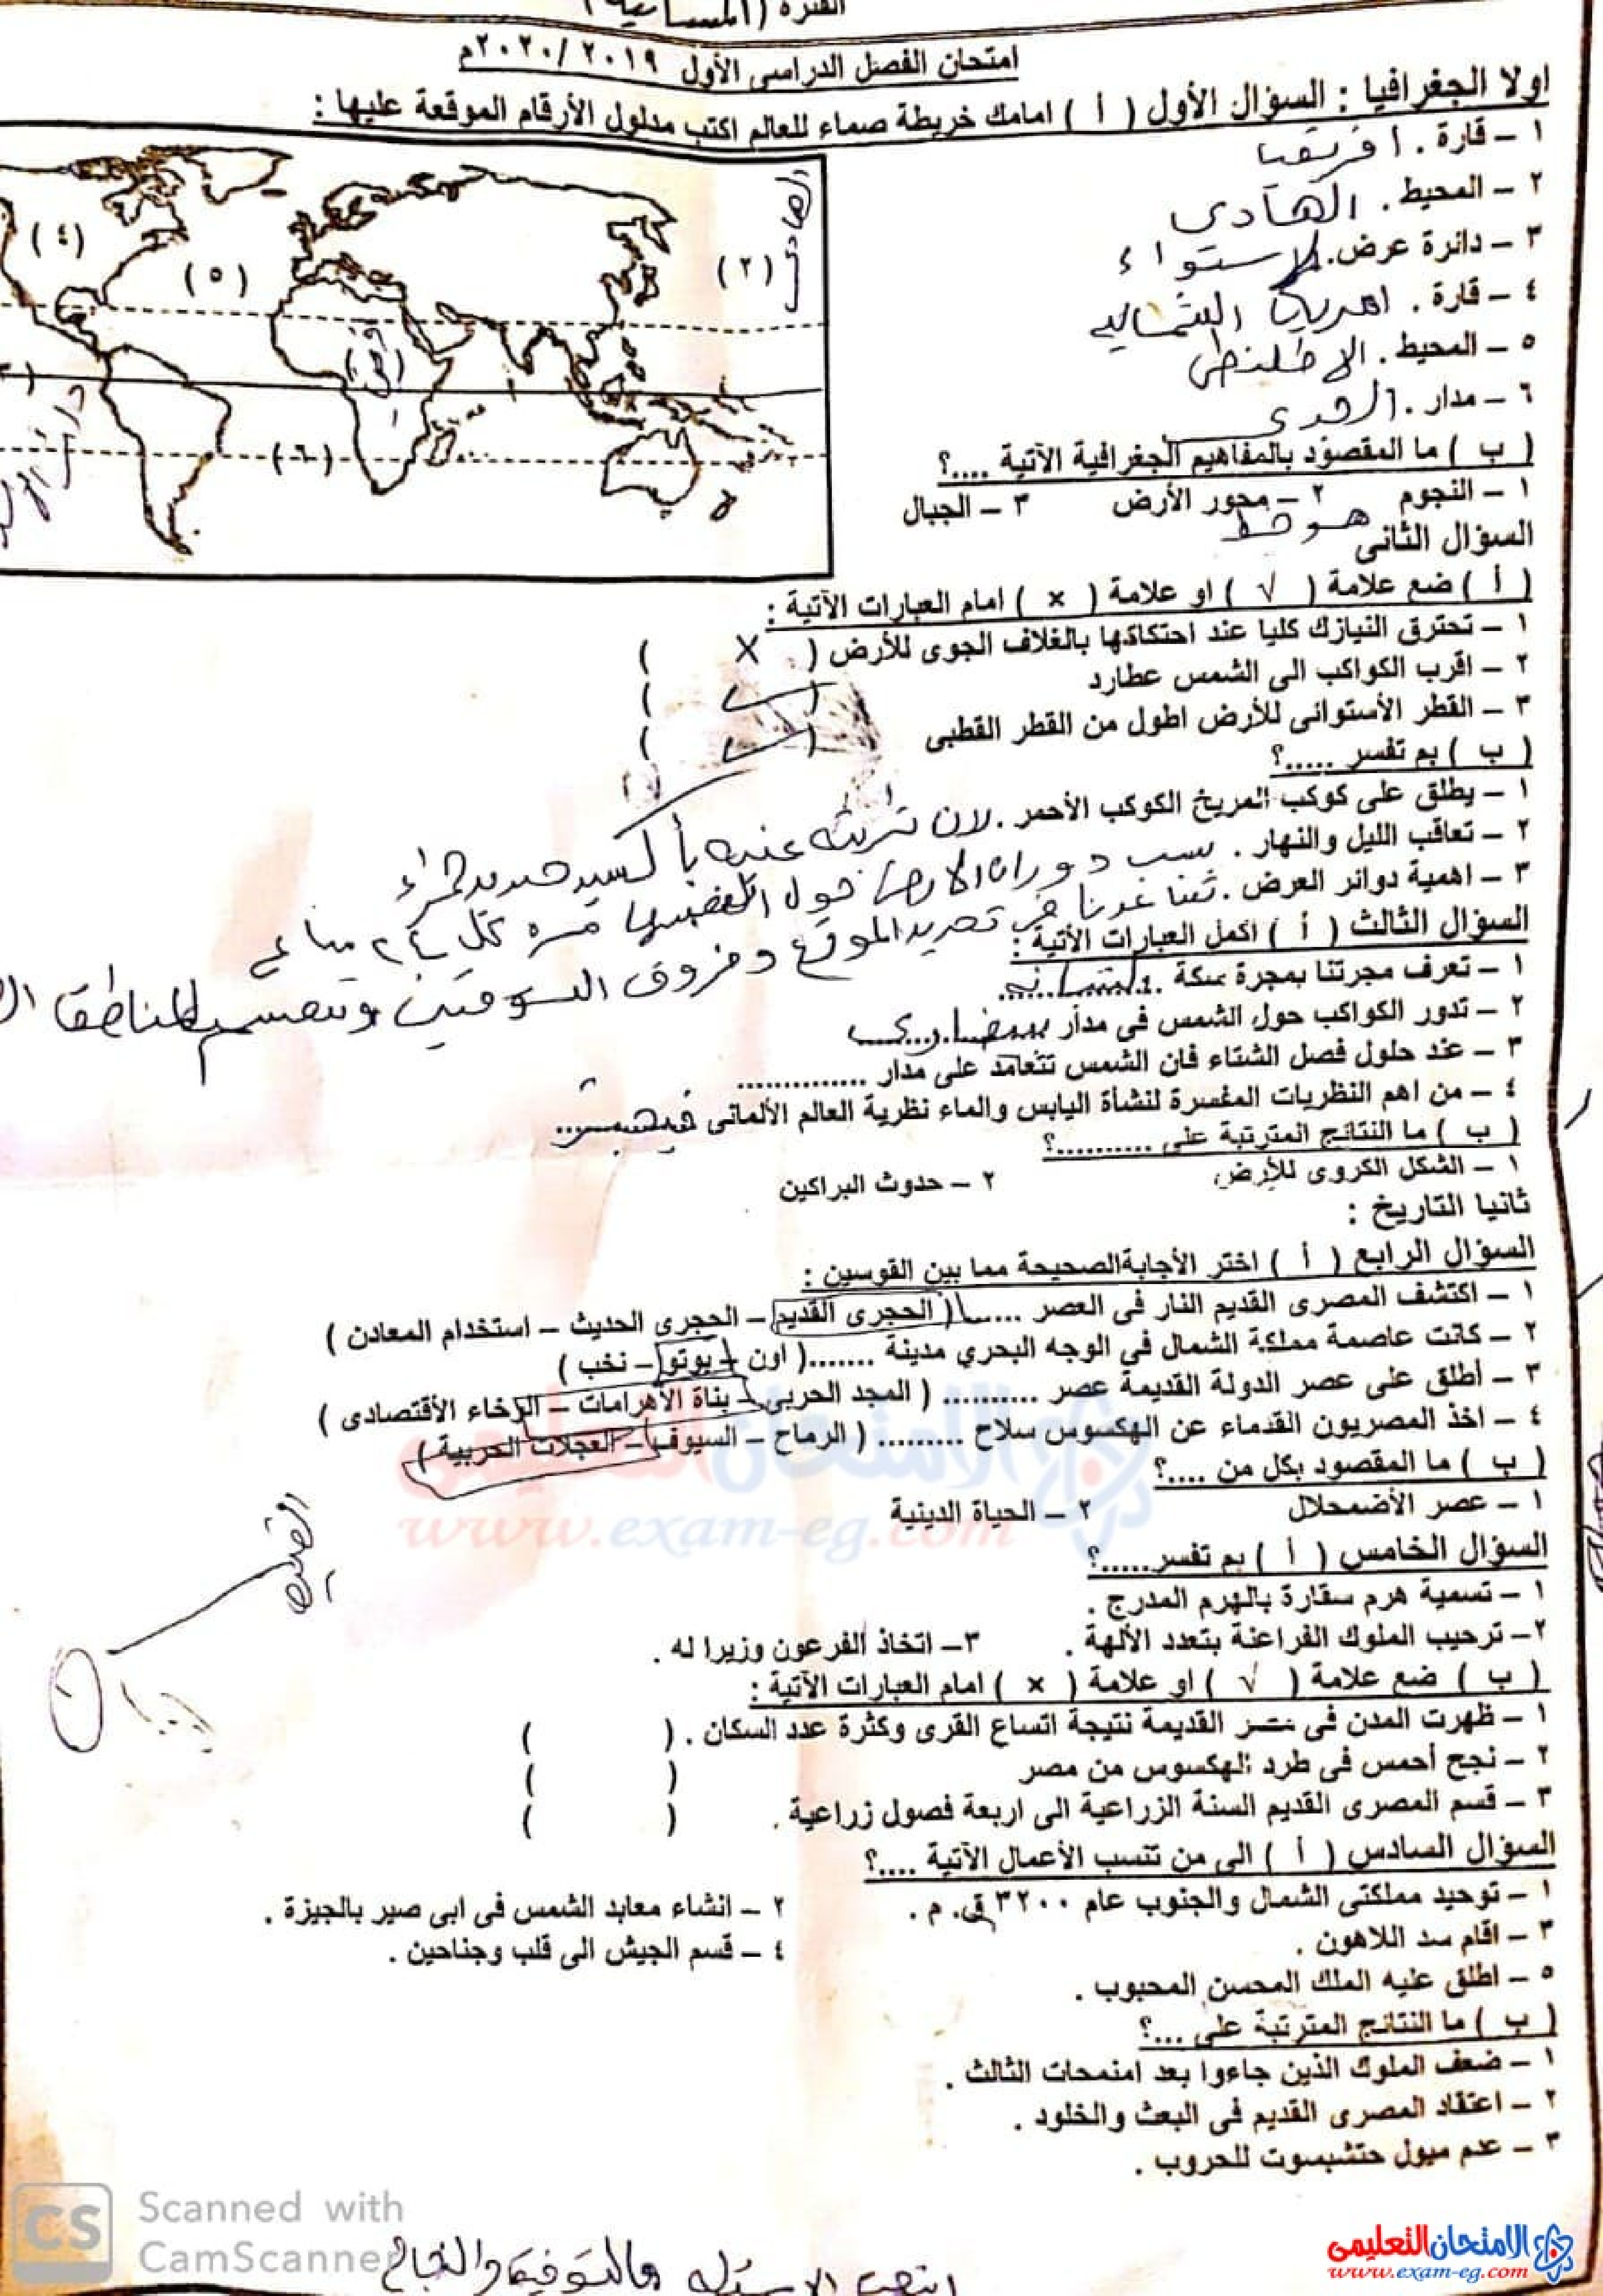 الفترة (المسائية)
امتحان الفصل الدراسى الأول ٢٠١٩ /٢٠٢٠م
اولا الجغرافيا : السؤال الأول ( أ ) امامك خريطة صماء للعالم اكتب مدلول الأرقام الموقعة عليها :
١ – قارة . افريقيا
٢ – المحيط . الهادى
٣ – دائرة عرض. الاستواء
٤ – قارة . امريكا الشمالية
٥ – المحيط . الاطلنطى
٦ – مدار . الجدى
(٤)
(٥)
(٢)
الهادى
(٦)
( ب ) ما المقصود بالمفاهيم الجغرافية الآتية ....؟
١ – النجوم ٢ – محور الأرض ٣ – الجبال
هو خط
السؤال الثانى
( أ ) ضع علامة ( √ ) او علامة ( × ) امام العبارات الآتية :
١ – تحترق النيازك كليا عند احتكاكها بالغلاف الجوى للأرض ( X )
٢ – اقرب الكواكب الى الشمس عطارد ( )
٣ – القطر الأستوائى للأرض اطول من القطر القطبى ( )
( ب ) بم تفسر .....؟
١ – يطلق على كوكب المريخ الكوكب الأحمر . لان تربته غنيه بأكسيد حديد حمراء
٢ – تعاقب الليل والنهار . بسبب دوران الارض حول نفسها مره كل ٢٤ ساعه
٣ – اهمية دوائر العرض . تساعدنا فى تحديد الموقع وفروق التوقيت وتقسيم المناطق
السؤال الثالث ( أ ) اكمل العبارات الآتية :
١ – تعرف مجرتنا بمجرة سكة . التبانه
٢ – تدور الكواكب حول الشمس فى مدار بيضاوى
٣ – عند حلول فصل الشتاء فان الشمس تتعامد على مدار ..............
٤ – من اهم النظريات المفسرة لنشأة اليابس والماء نظرية العالم الألمانى فيجنر
( ب ) ما النتائج المترتبة على ..........؟
١ – الشكل الكروى للأرض ٢ – حدوث البراكين
ثانيا التاريخ :
السؤال الرابع ( أ ) اختر الأجابةالصحيحة مما بين القوسين :
١ – اكتشف المصرى القديم النار فى العصر ...... ( الحجرى القديم – الحجرى الحديث – استخدام المعادن )
٢ – كانت عاصمة مملكة الشمال فى الوجه البحري مدينة .......( اون – بوتو – نخب )
٣ – أطلق على عصر الدولة القديمة عصر .......... ( المجد الحربى – بناة الأهرامات – الرخاء الأقتصادى )
٤ – اخذ المصريون القدماء عن الهكسوس سلاح ......... ( الرماح – السيوف – العجلات الحربية )
( ب ) ما المقصود بكل من ....؟
١ – عصر الأضمحلال ٢ – الحياة الدينية
السؤال الخامس ( أ ) بم تفسر.....؟
١ – تسمية هرم سقارة بالهرم المدرج .
٢– ترحيب الملوك الفراعنة بتعدد الألهة . ٣– اتخاذ الفرعون وزيرا له .
( ب ) ضع علامة ( √ ) او علامة ( × ) امام العبارات الآتية :
١ – ظهرت المدن فى مصر القديمة نتيجة اتساع القرى وكثرة عدد السكان . ( )
٢ – نجح أحمس فى طرد الهكسوس من مصر ( )
٣ – قسم المصرى القديم السنة الزراعية الى اربعة فصول زراعية . ( )
السؤال السادس ( أ ) الى من تنسب الأعمال الآتية ....؟
١ – توحيد مملكتى الشمال والجنوب عام ٣٢٠٠ ق. م . ٢ – انشاء معابد الشمس فى ابى صير بالجيزة .
٣ – اقام سد اللاهون . ٤ – قسم الجيش الى قلب وجناحين .
٥ – اطلق عليه الملك المحسن المحبوب .
( ب ) ما النتائج المترتبة على ...؟
١ – ضعف الملوك الذين جاءوا بعد امنمحات الثالث .
٢ – اعتقاد المصرى القديم فى البعث والخلود .
٣ – عدم ميول حتشبسوت للحروب .
انتهت الاسئله بالتوفيق والنجاح
الامتحان التعليمى
www.exam-eg.com
CS Scanned with
CamScanner
الامتحان التعليمى
www.exam-eg.com